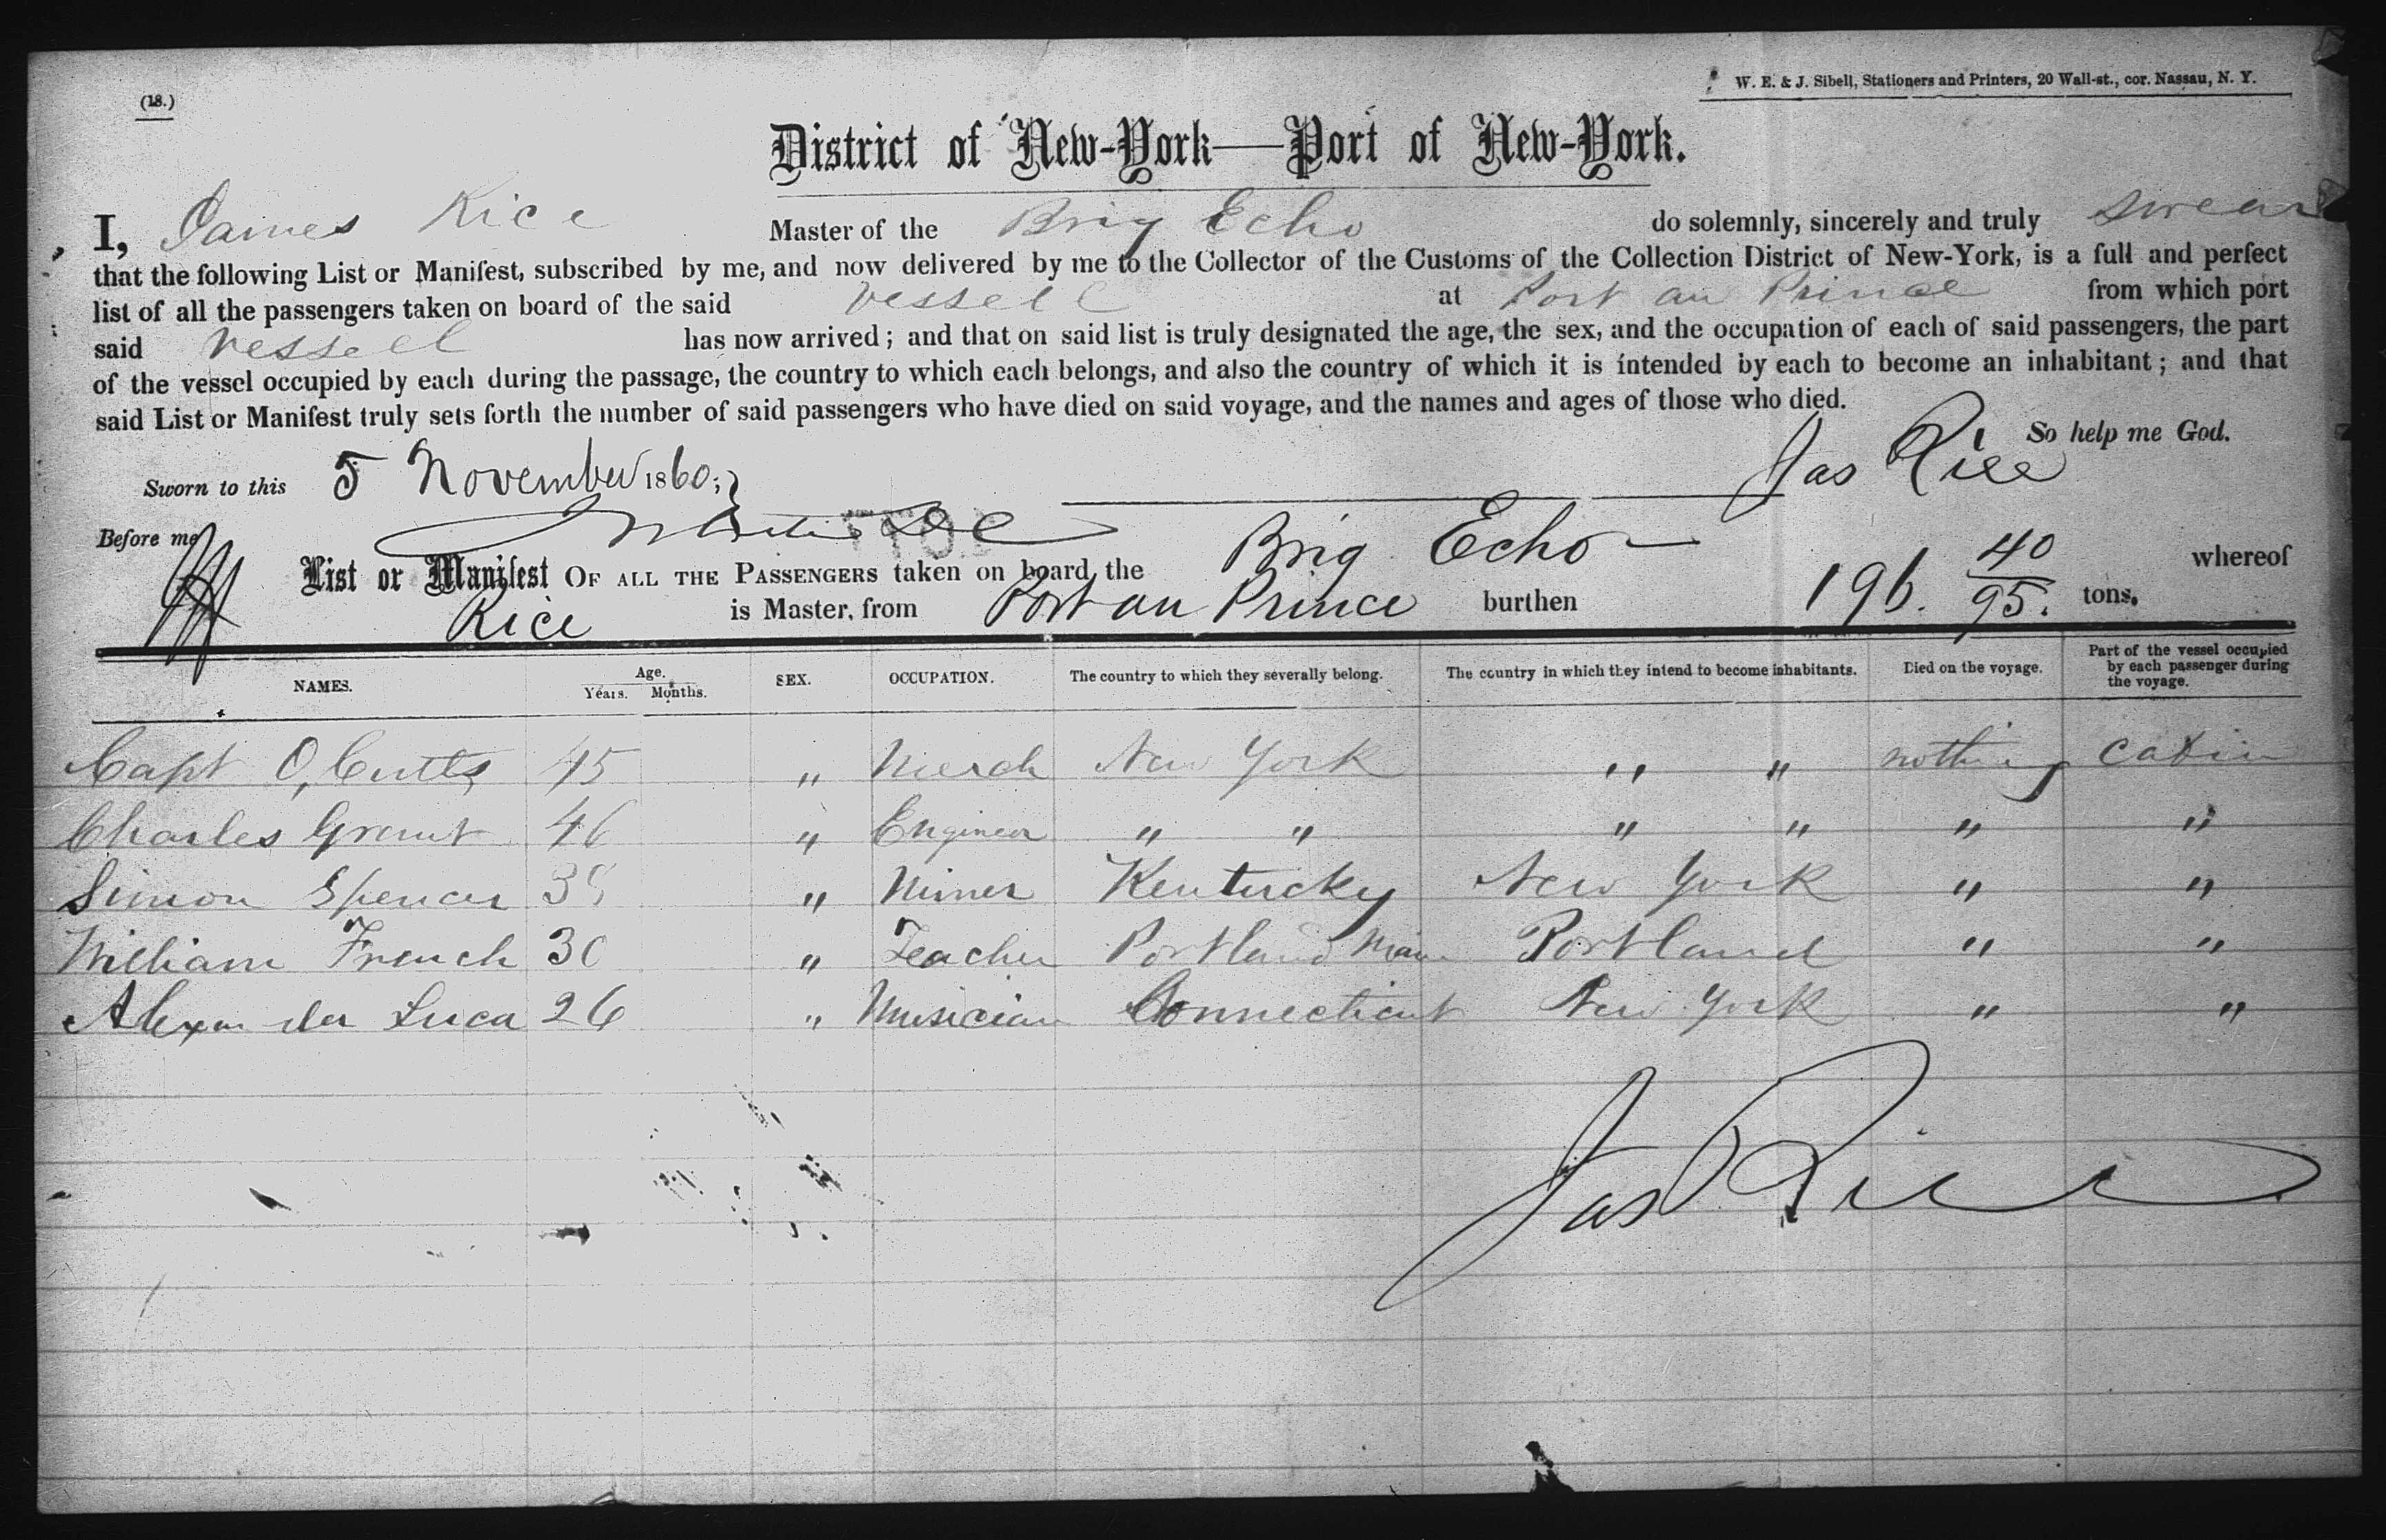 (18.)
W. E. & J. Sibell, Stationers and Printers, 20 Wall-st., cor. Nassau, N. Y.
District of New-York—Port of New-York.
I, James Rice Master of the Brig Echo do solemnly, sincerely and truly swear
that the following List or Manifest, subscribed by me, and now delivered by me to the Collector of the Customs of the Collection District of New-York, is a full and perfect
list of all the passengers taken on board of the said vessell at Port au Prince from which port
said vessell has now arrived; and that on said list is truly designated the age, the sex, and the occupation of each of said passengers, the part
of the vessel occupied by each during the passage, the country to which each belongs, and also the country of which it is intended by each to become an inhabitant; and that
said List or Manifest truly sets forth the number of said passengers who have died on said voyage, and the names and ages of those who died.
So help me God.
Sworn to this 5 November 1860; Jas Rice
Before me
List or Manifest OF ALL THE PASSENGERS taken on board the Brig Echo whereof
Rice is Master, from Port au Prince burthen 196. 40/95. tons.
NAMES. Age. Years. Months. SEX. OCCUPATION. The country to which they severally belong. The country in which they intend to become inhabitants. Died on the voyage. Part of the vessel occupied by each passenger during the voyage.
Capt O, Cutts 45 " Merch New York " " nothing cabin
Charles Grant 46 " Engineer " " " " " "
Simon Spencer " Miner Kentucky New York " "
William French 30 " Teacher Portland Main Portland " "
Alexander Luca 26 " Musician Connecticut New York " "
Jas Rice